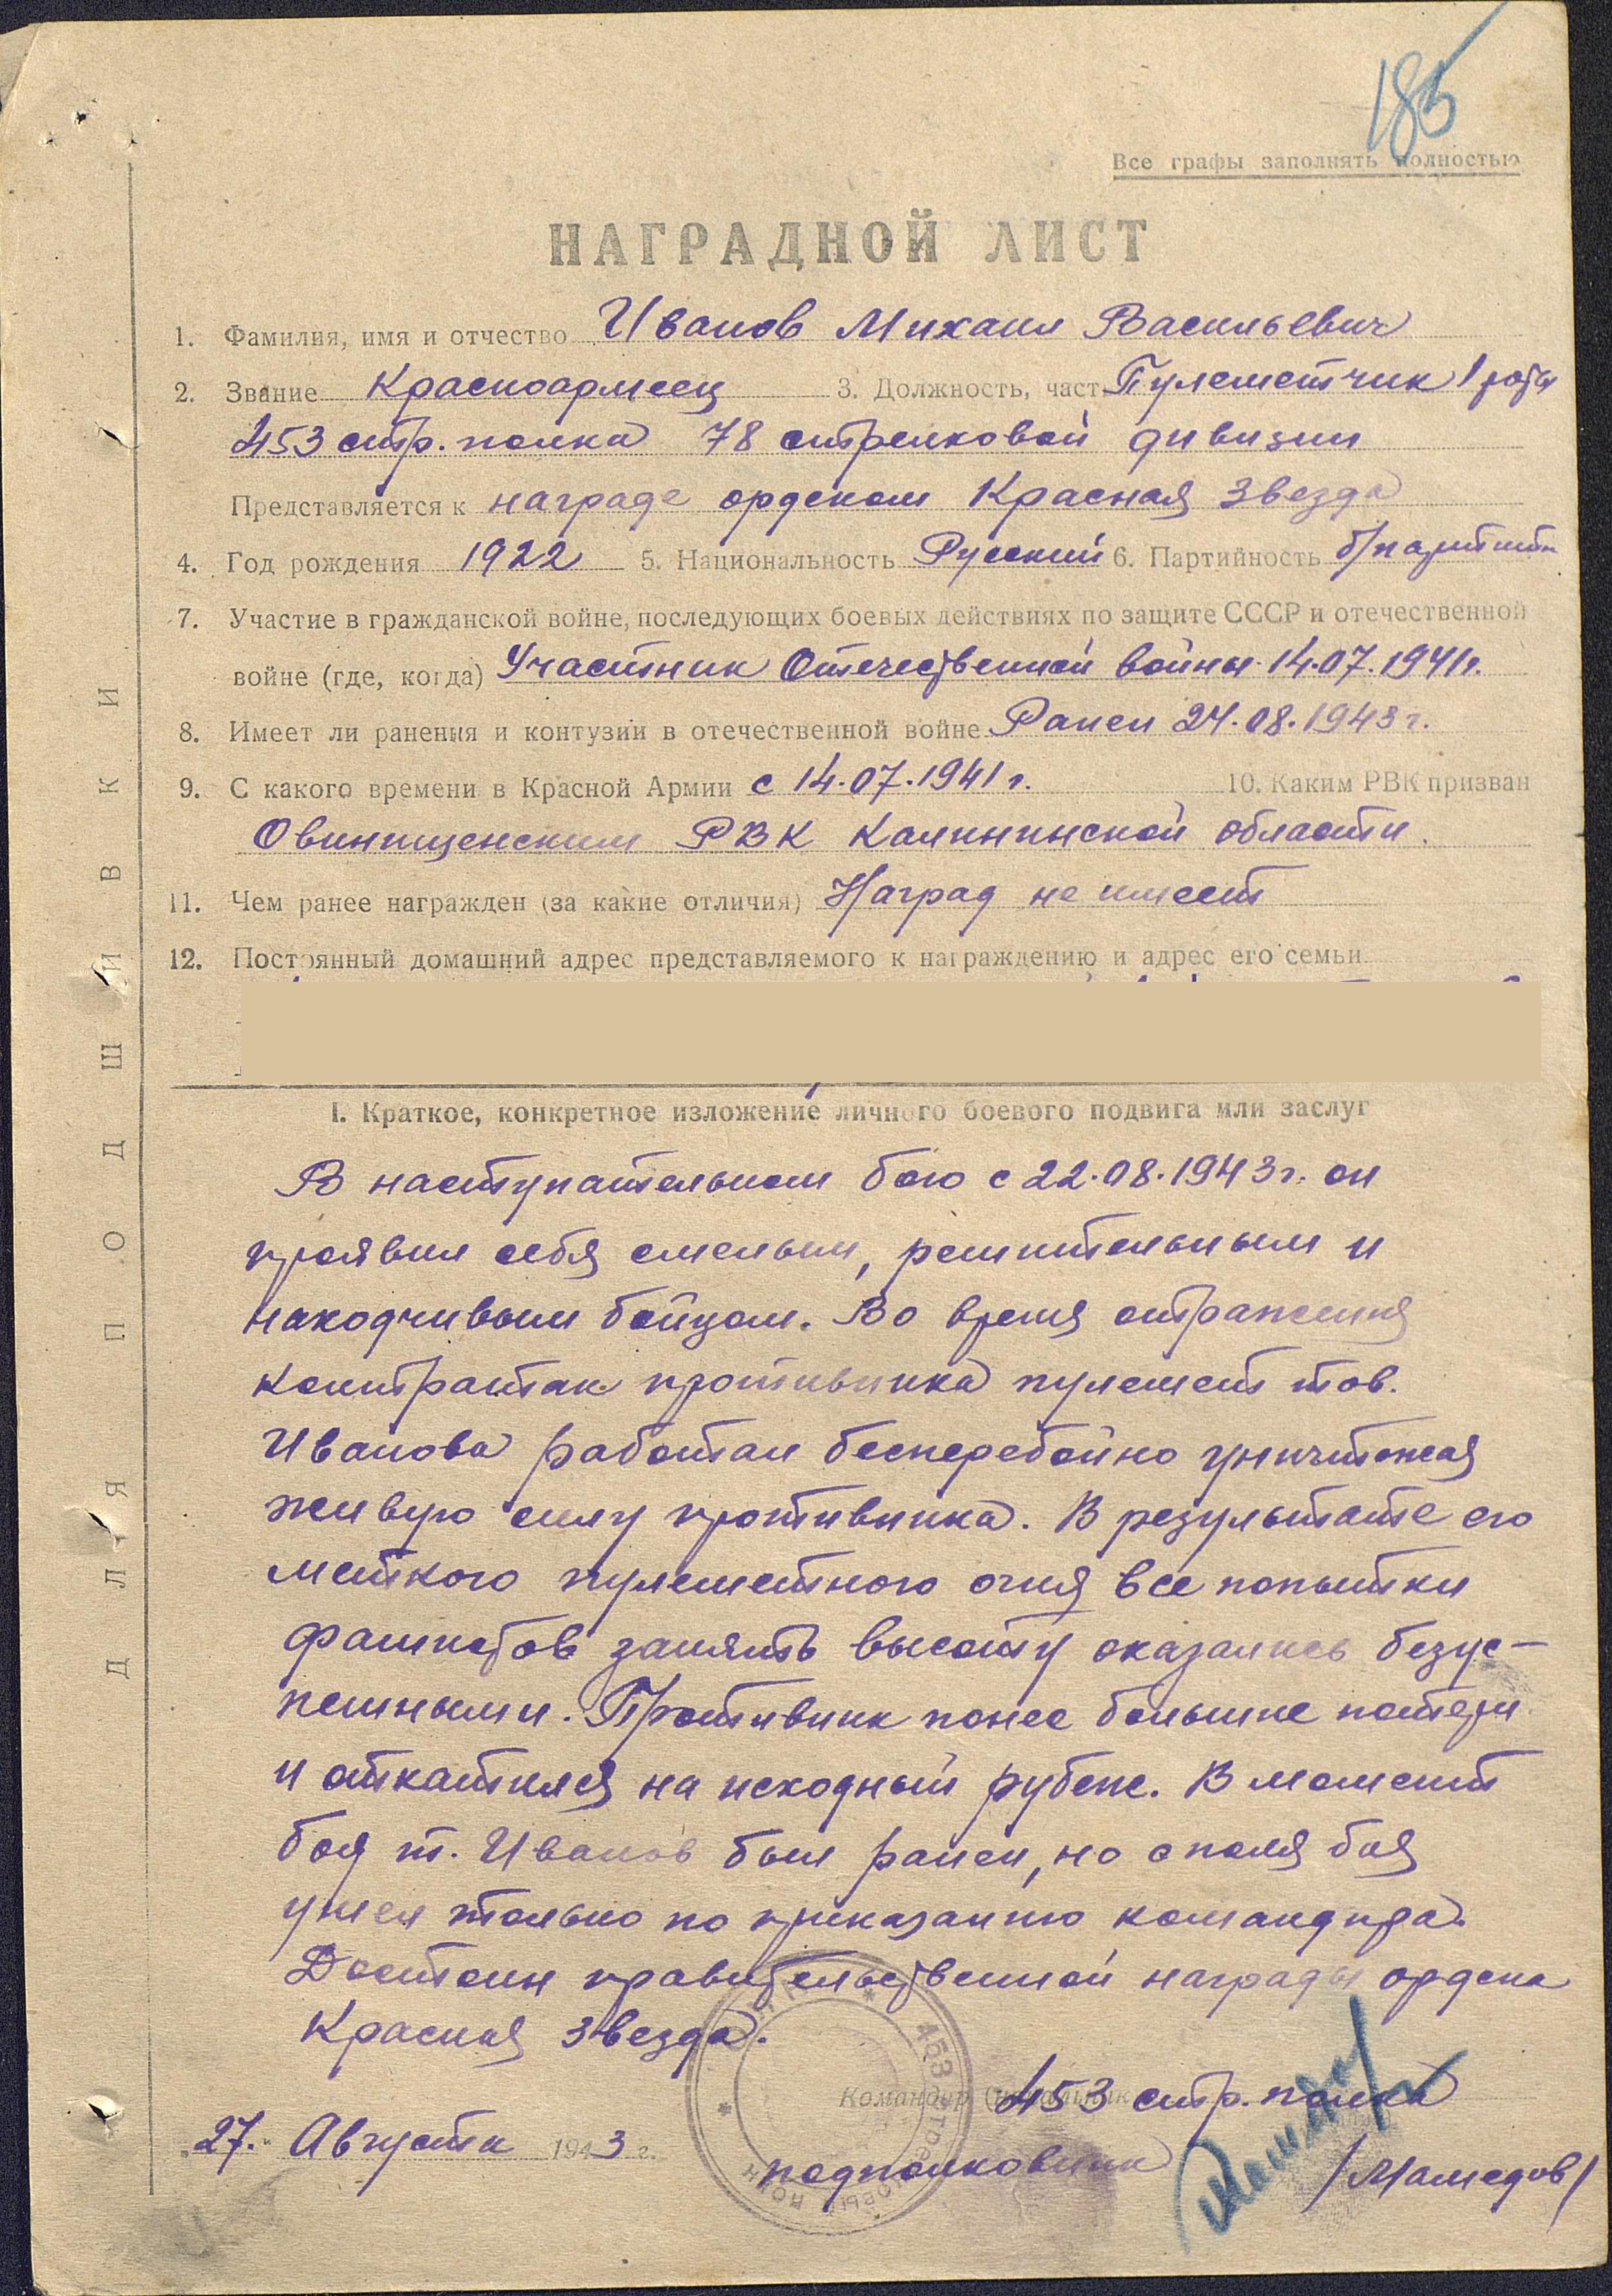 185
Все графы заполнять полностью
НАГРАДНОЙ ЛИСТ
1. Фамилия, имя и отчество Иванов Михаил Васильевич
2. Звание Красноармеец 3. Должность, часть Пулеметчик 1 роты
453 стр. полка 78 стрелковой дивизии
Представляется к награде орденом Красная Звезда
4. Год рождения 1922 5. Национальность Русский 6. Партийность б/партийн
7. Участие в гражданской войне, последующих боевых действиях по защите СССР и отечественной
войне (где, когда) Участник Отечественной войны 14.07.1941г.
8. Имеет ли ранения и контузии в отечественной войне Ранен 24.08.1943г.
9. С какого времени в Красной Армии с 14.07.1941г. 10. Каким РВК призван
Овинищенским РВК Калининской области.
11. Чем ранее награжден (за какие отличия) Наград не имеет
12. Постоянный домашний адрес представляемого к награждению и адрес его семьи
I. Краткое, конкретное изложение личного боевого подвига или заслуг
В наступательном бою с 22.08.1943г. он
проявил себя смелым, решительным и
находчивым бойцом. Во время отражения
контратак противника пулемет тов.
Иванова работал бесперебойно уничтожая
живую силу противника. В результате его
меткого пулеметного огня все попытки
фашистов занять высоту оказались безус-
пешными. Противник понес большие потери
и откатился на исходный рубеж. В момент
боя т. Иванов был ранен, но с поля боя
ушел только по приказанию командира.
Достоин правительственной награды ордена
Красная Звезда.
Командир (начальник 453 стр. полка
„27.“ Августа 1943 г.
подполковник /Мамедов/
453 стрелковый полк
ДЛЯ ПОДШИВКИ